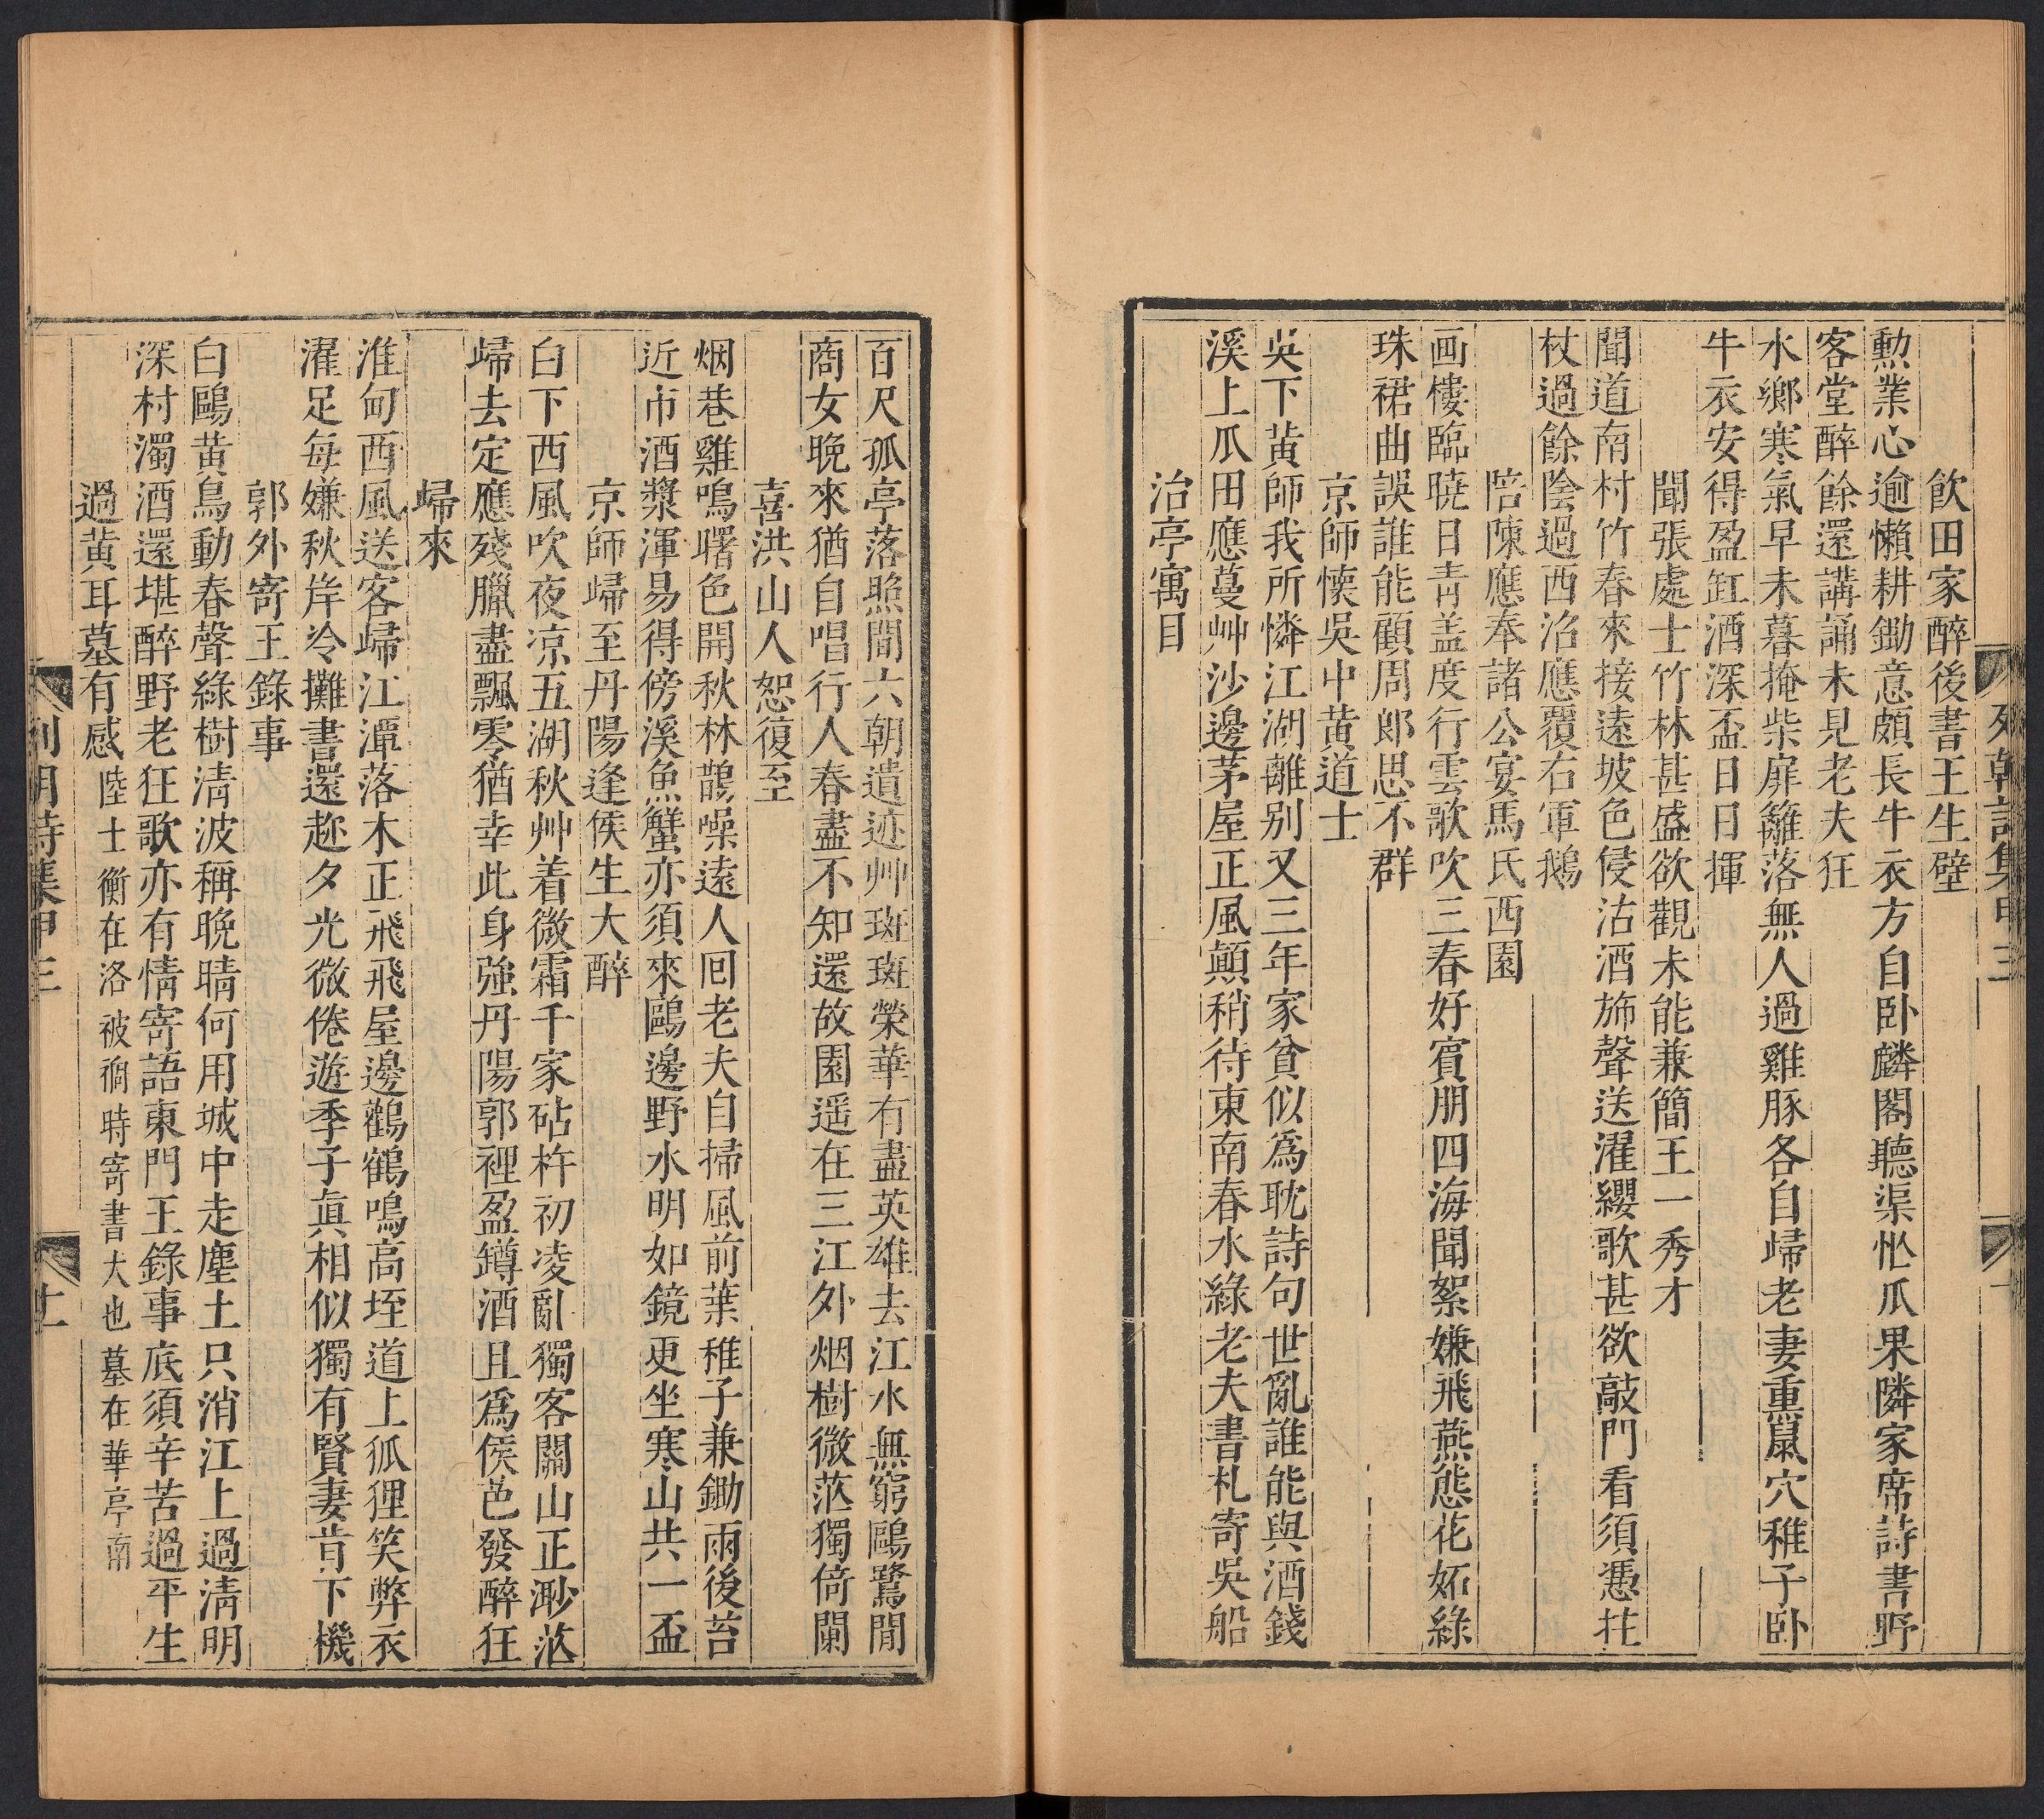 飲田家醉後書王生壁
勳業心逾懶耕鋤意頗長牛衣方自卧麟閣聽渠忙瓜果隣家席詩書野
客堂醉餘還講誦未見老夫狂
水鄉寒氣早未暮掩柴扉籬落無人過雞豚各自歸老妻熏鼠穴稚子卧
牛衣安得盈缸酒深盃日日揮
聞張處士竹林甚盛欲觀未能兼簡王一秀才
聞道南村竹春來接遠坡色侵沽酒斾聲送濯纓歌甚欲敲門看須憑拄
杖過餘陰過西沼應覆右軍鵝
陪陳應奉諸公宴馬氏西園
画樓臨曉日青盖度行雲歌吹三春好賓朋四海聞絮嫌飛燕態花妬綠
珠裙曲誤誰能顧周郎思不群
京師懷吳中黄道士
吳下黄師我所憐江湖離别又三年家貧似爲耽詩句世亂誰能與酒錢
溪上瓜田應蔓艸沙邊茅屋正風顛稍待東南春水綠老夫書札寄吳船
治亭寓目
百尺孤亭落照間六朝遺迹艸斑斑榮華有盡英雄去江水無窮鷗鷺閒
商女晚來猶自唱行人春盡不知還故園遥在三江外烟樹微茫獨倚闌
喜洪山人恕復至
烟巷雞鳴曙色開秋林鵲噪遠人囘老夫自掃風前葉稚子兼鋤雨後苔
近市酒漿渾易得傍溪魚蟹亦須來鷗邊野水明如鏡更坐寒山共一盃
京師歸至丹陽逢侯生大醉
白下西風吹夜凉五湖秋艸着微霜千家砧杵初凌亂獨客關山正渺茫
歸去定應殘臘盡飄零猶幸此身強丹陽郭裡盈罇酒且爲侯芭發醉狂
歸來
淮甸西風送客歸江潭落木正飛飛屋邊鸛鶴鳴高垤道上狐狸笑弊衣
濯足每嫌秋岸冷攤書還趂夕光微倦遊季子真相似獨有賢妻肯下機
郭外寄王錄事
白鷗黄鳥動春聲綠樹清波稱晚晴何用城中走塵土只消江上過清明
深村濁酒還堪醉野老狂歌亦有情寄語東門王錄事底須辛苦過平生
過黄耳墓有感 陸士衡在洛被禍時寄書大也墓在華亭南